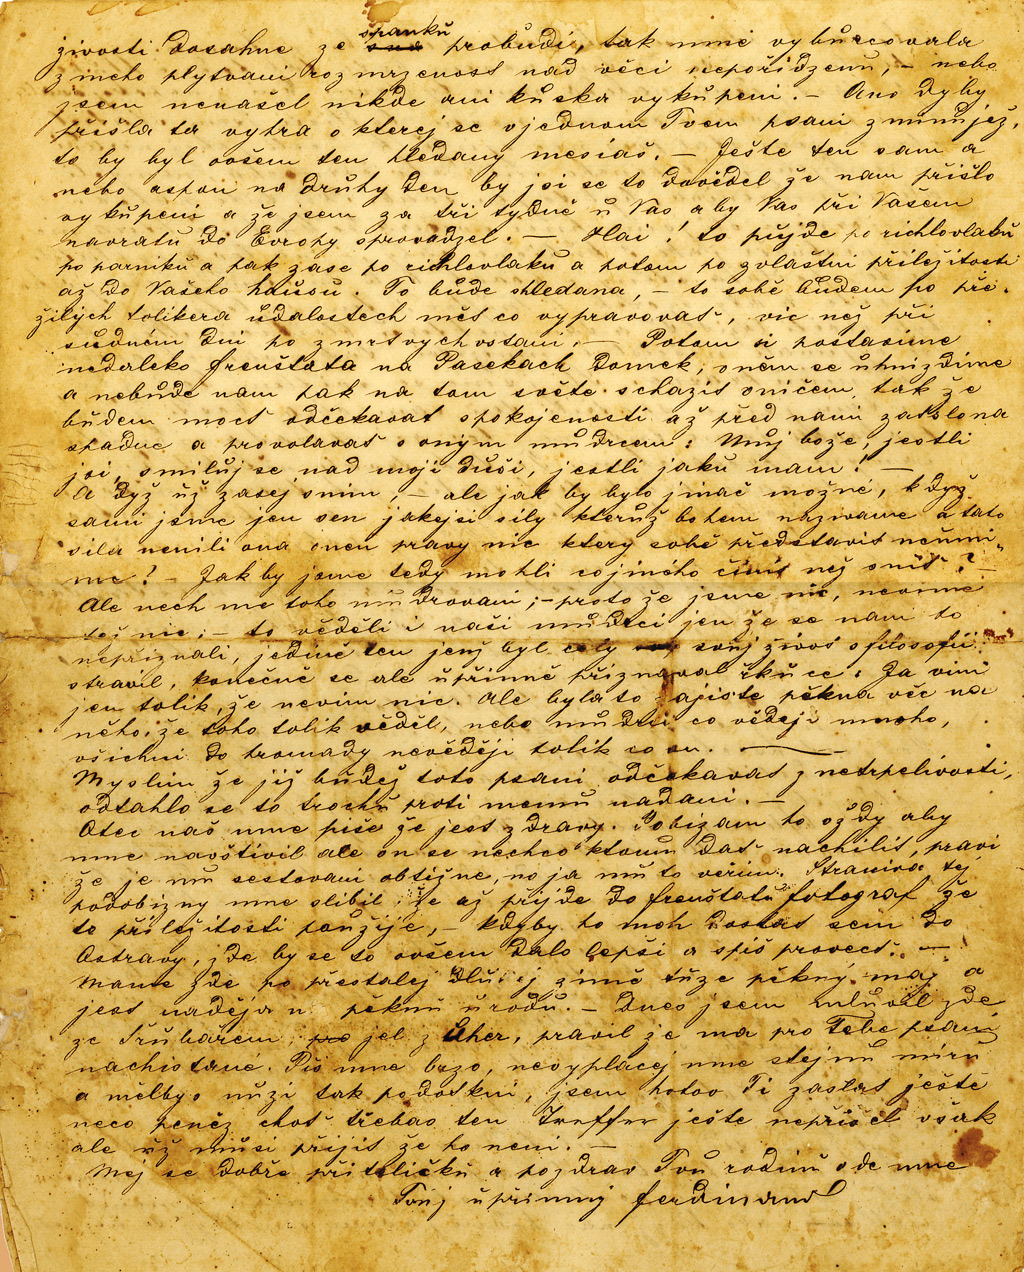 živosti dosahne ze spanků probudí, tak mně vyburcovala
z meho plytvani rozmrzenost nad věci nepořidzenů, – nebo
jsem nenašel nikde ani kůska vykůpeni. – Ano dyby
přišla ta vyhra o kterej se vjednom Tvem psani zminůješ,
to by byl ovšem ten hledany mesiaš. – Ješte ten sam a
nebo aspoň na drůhy den by jsi se to dověděl že nam přišlo
vykůpeni a že jsem za tři tydně ů Vas aby Vas při Vašem
navratů do Evropy sprovadzel. – Hai! to půjde po richlovlaků
po parniků a pak zase po richlovlaků a potom po zvlaštni přiležitosti
až do Vašeho haůsů. To bůde shledana, – to sobě bůdem po pře-
žilých tolikera ůdalostech mět co vypravovat, vic něž při
sůdném dni po zmrtvychvstani. – Potom si postavime
nedaleko frenštata na Pasekach Domek, v něm se ůhnizdime
a nebůde nam pak na tom světe schazit s ničem, tak že
bůdem moct odčekavat spokojenosti až před nami zaslona
spadne a provolavat s oným můdrcem: Můj bože, jestli
jsi, smilůj se nad moji důši, jestli jaků mam! –
A dyž ůž zasej snim, – ale jak by bylo jinač možné, když
sami jsme jen sen jakejsi sily kterůž bohem nazivame a tato
sila neníli ona onen pravy nic ktery sobě představit neůmi-
me? – Jak by jsme tedy mohli co jiného činit něž snit? –
Ale nech me toho můdrovani; – proto že jsme nic, nevime
též nic; – to věděli i naši můdrci jen že se nam to
nepřiznali, jedině ten jenž byl cely svůj život s filosofii
stravil, konečně se ale ůpřimně přiznaval řkůce: Ja vim
jen tolik, že nevim nic. Ale byla to zajiste pěkna věc na
něho, že toho tolik věděl, nebo můdrci co věději mnoho,
všichni do hromady nevěději tolik co on. –
Myslim že již bůdeš toto psani odčekavat z netrpelivosti,
odtahlo se to trochů proti memů nadani. –
Otec naš mně piše že jest zdravy. Pobizam ho vždy aby
mně navštivil ale on se nechce ktomů dat nachilit, pravi
že je mů cestovani obtižne, no ja mů to věřim. Straniva tej
podobizny mně slibil že až přijde do frenštatů fotograf že
te přiležitosti poůžije, – kdyby ho moh dostat sem do
Ostravy, zde by se to ovšem dalo lepši a spiš provect. –
Mame zde po přestalej dlůhej zimě tůze pěkný maj a
jest naděja na pěknů ůrodů. – Dnes jsem mlůvil zde
ze Trůbařem, jel z Ůher, pravil že ma pro Tebe psani
nachistané. Piš mně brzo, neoplacej mně stejnů mirů
a mělbys nůzi tak podotkni, jsem hotov Ti zaslat ještě
neco peněz chot třebas ten Treffer ješte nepřišel však
ale ůž můsi přijit že ho neni. –
Mej se dobře přiteličků a pozdrav Tvů rodinů ode mne
Tvůj ůpřimný ferdinand